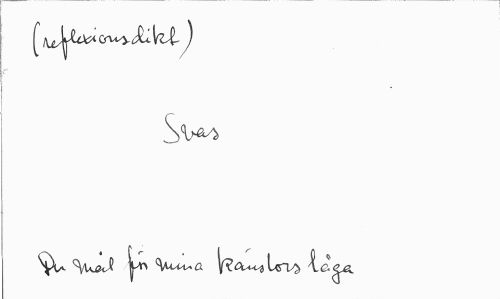 (reflexionsdikt)
Svar
Du mål för mina känslors låga